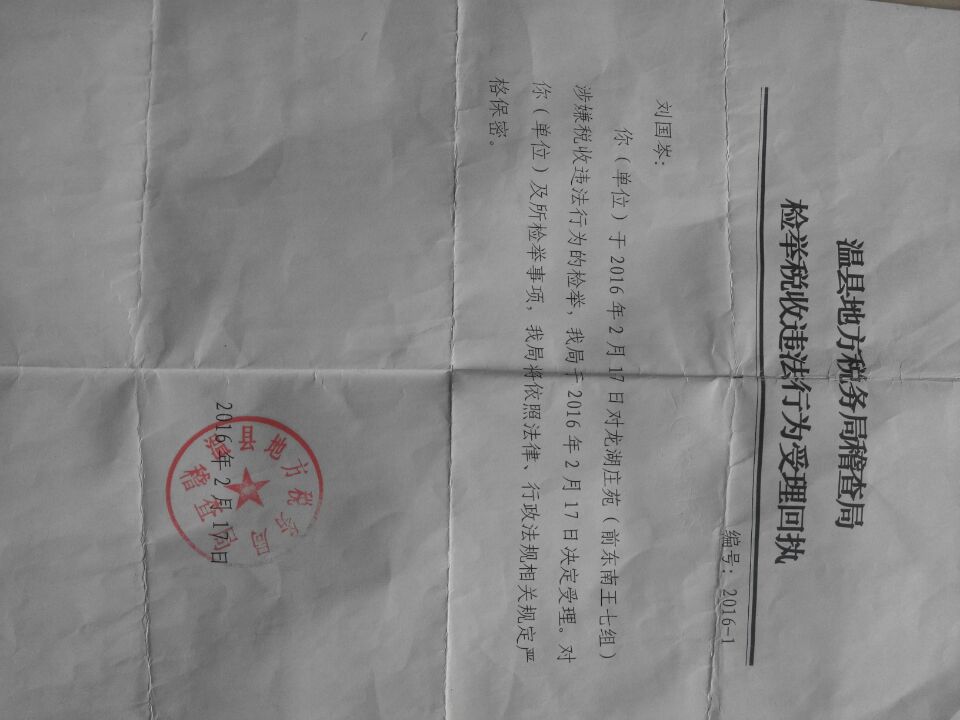 温县地方税务局稽查局
检举税收违法行为受理回执
编号：2016-1
刘国岑：
你（单位）于2016年2月17日对龙湖庄苑（前东南王七组）
涉嫌税收违法行为的检举，我局于2016年2月17日决定受理。对
你（单位）及所检举事项，我局将依照法律、行政法规相关规定严
格保密。
温县地方税务局
稽查局
2016年2月17日